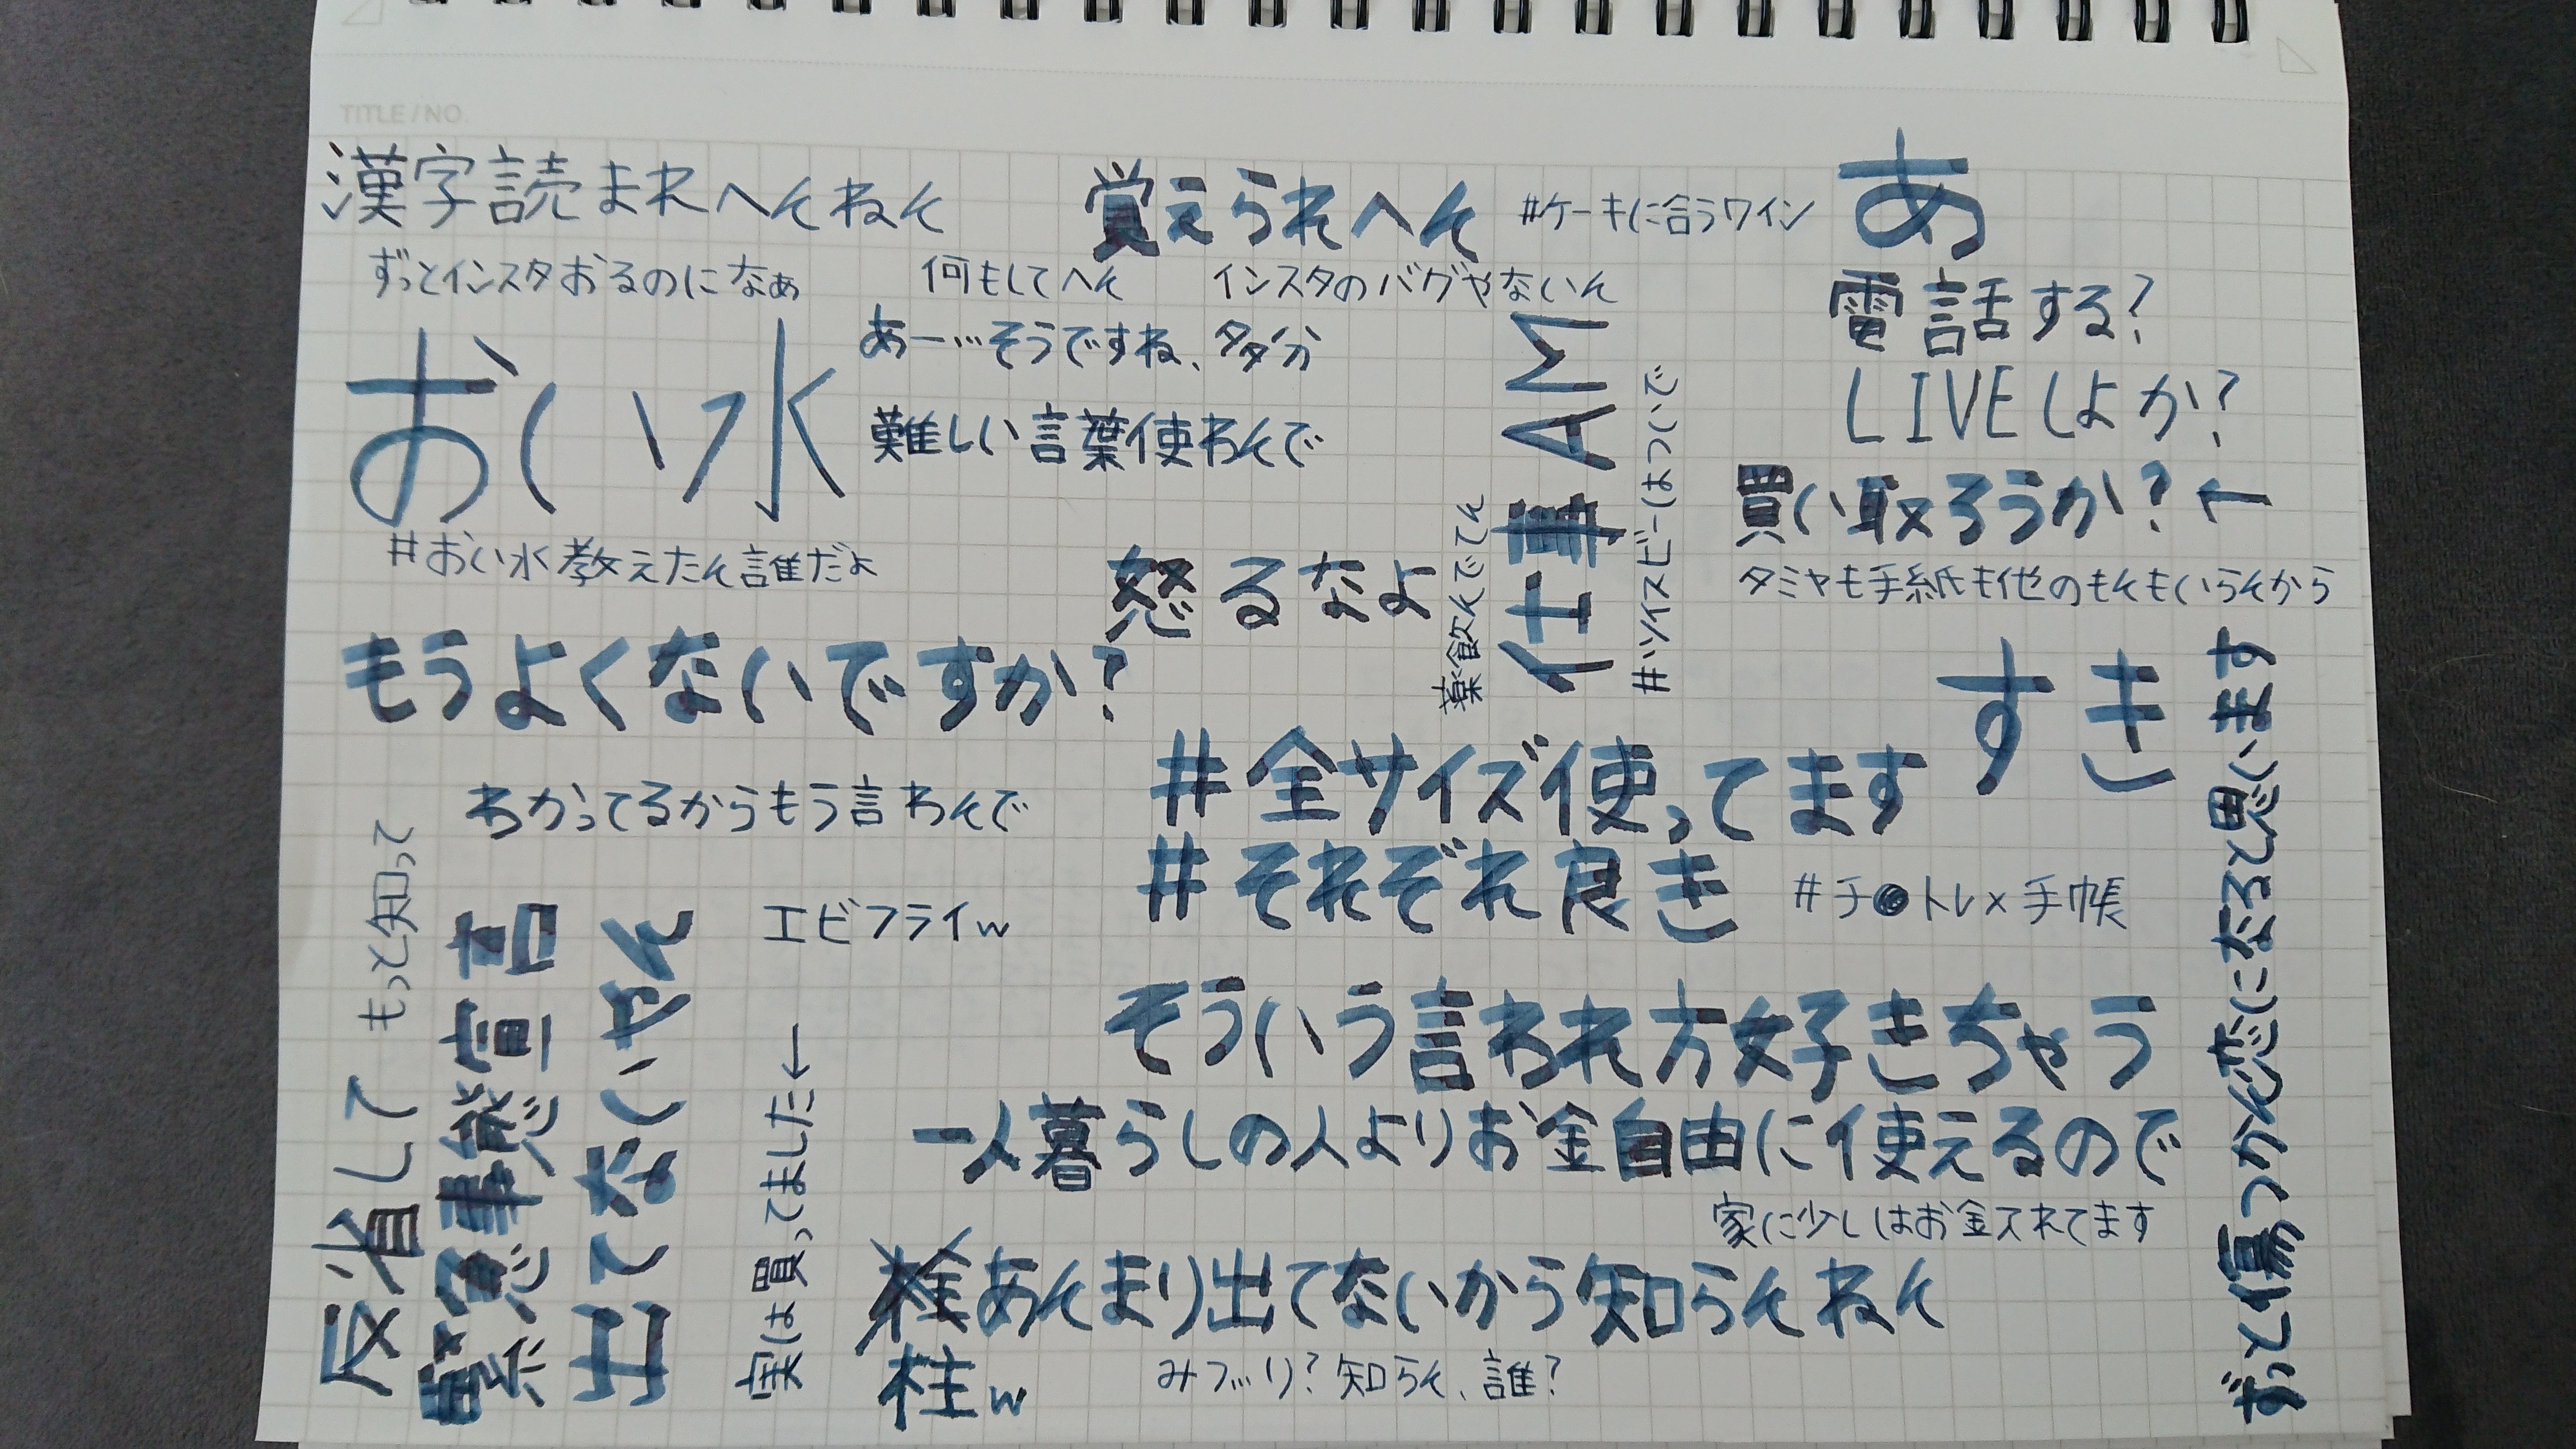 TITLE/NO.
漢字読まれへんねん
ずっとインスタおるのになぁ
おい水
#おい水教えたん誰だよ
もうよくないですか?
わかってるからもう言わんで
覚えられへん
何もしてへん
インスタのバグやないん
あー…そうですね、多分
難しい言葉使わんで
怒るなよ
#ケーキに合うワイン
あ
電話する?
LIVEしよか?
買い取ろうか?↑
タミヤも手紙も他のもんもいらんから
薬飲んでてん
仕事AM
#ツイスビーはついで
すき
#全サイズ使ってます
#それぞれ良き
#チ トレ×手帳
そういう言われ方好きちゃう
一人暮らしの人よりお金自由に使えるので
家に少しはお金入れてます
あんまり出てないから知らんねん
柱w
みつり?知らん、誰?
エビフライw
実は買ってました←
出てないやん
緊急事態宣言
反省して もっと知って
ずっと傷つかん恋になると思います